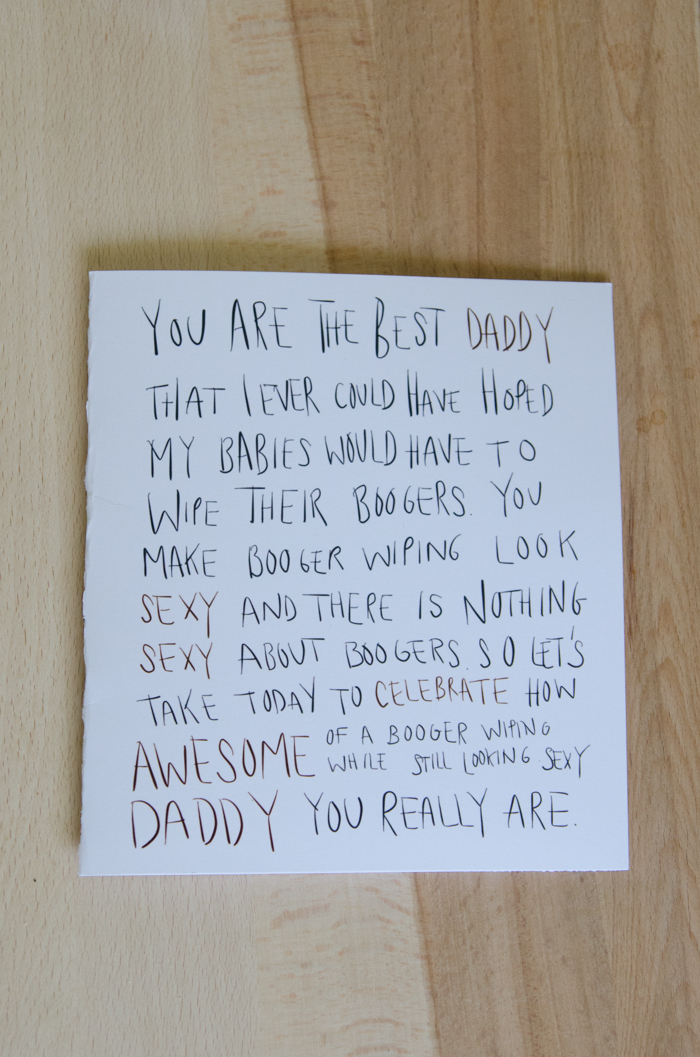 YOU ARE THE BEST DADDY
THAT I EVER COULD HAVE HOPED
MY BABIES WOULD HAVE TO
WIPE THEIR BOOGERS. YOU
MAKE BOOGER WIPING LOOK
SEXY AND THERE IS NOTHING
SEXY ABOUT BOOGERS. SO LET'S
TAKE TODAY TO CELEBRATE HOW
AWESOME OF A BOOGER WIPING
WHILE STILL LOOKING SEXY
DADDY YOU REALLY ARE.